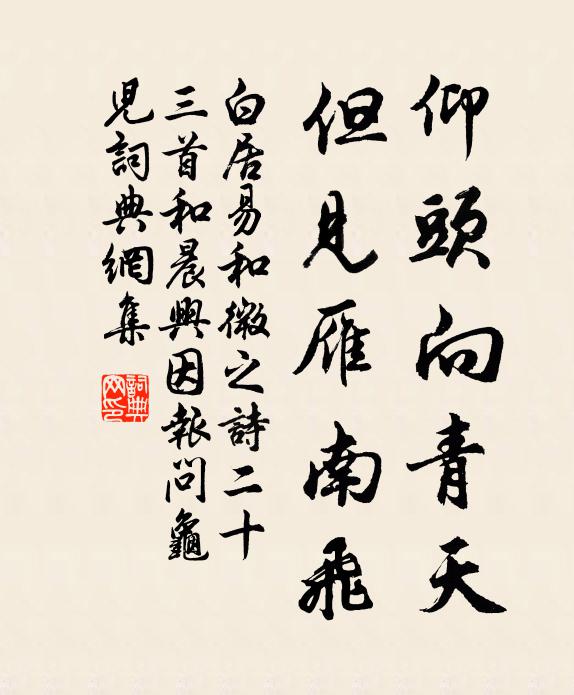 仰頭向青天
但見雁南飛
白居易和微之詩二十
三首和晨興因報問龜
兒詞典網集
詞典网印